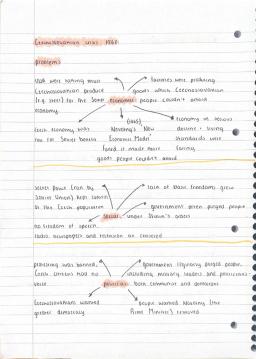 Czechoslovakian crisis 1968
problems
USSR were making much
factories were producing
Czechoslovakian produce
goods which Czechoslovakian
(e.g. steel) for the Soviet
economic
people couldn't afford
economy
(1965)
economy in
decline - living
Czech economy was
Novotny's 'New
run for Soviet benefit
Economic Model'
standards were
failed, it made more
falling
goods people couldn't afford
secret police (ran by
lack of basic freedoms grew
Soviet Union) kept control
of the Czech population
social
under
orders
no freedom of speech
radio, newspapers and television all censored
protesting was banned,
government purged people
Czech citizens had no
including military leaders and politicians -
voice
political
both communist and democratic
Czechoslovakians wanted
people wanted Novotny (the
greater democracy
Prime Minister) removed